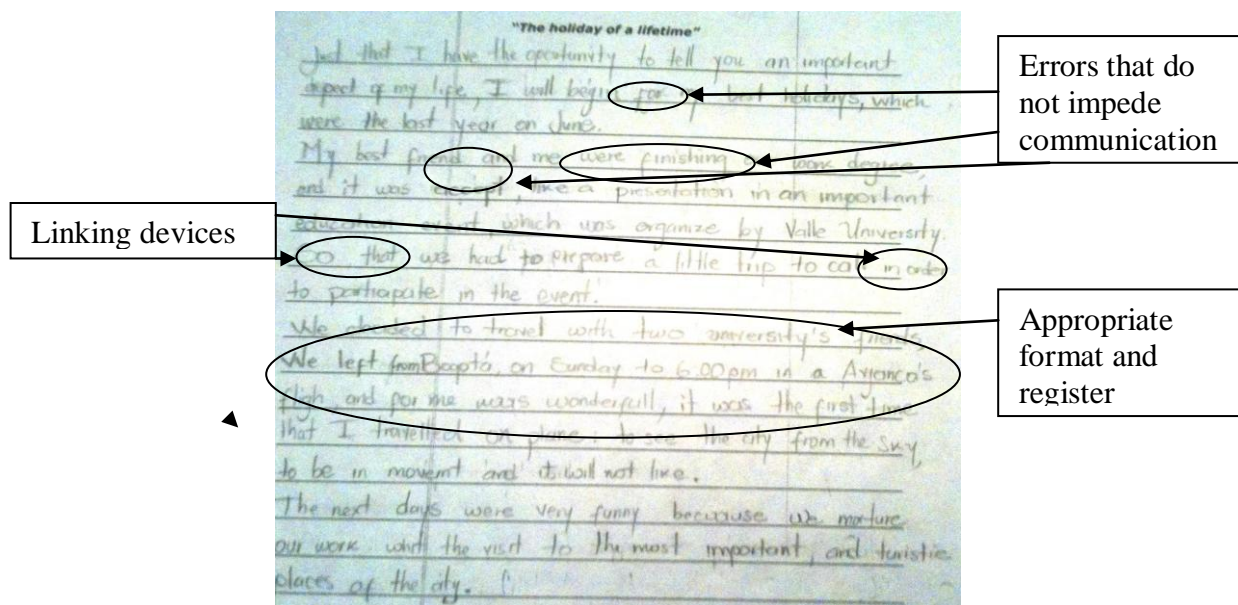 "The holiday of a lifetime"
Just that I have the oportunity to tell you an important
aspect of my life, I will begin for my best holidays, which
were the last year on June.
My best friend and me were finishing work degree,
and it was accept, like a presentation in an important
education event, which was organize by Valle University.
So that we had to prepare a little trip to cali in order
to participate in the event.
We decided to travel with two university's friends,
We left from Bogotá, on Sunday to 6:00pm in a Avianca's
fligh, and for me was wonderfull, it was the first time
that I travelled on plane: to see the city from the sky,
to be in movemt and it will not like.
The next days were very funny because we mixture
our work whit the visit to the most important, and turistic
places of the city.
Errors that do
not impede
communication
Linking devices
Appropriate
format and
register